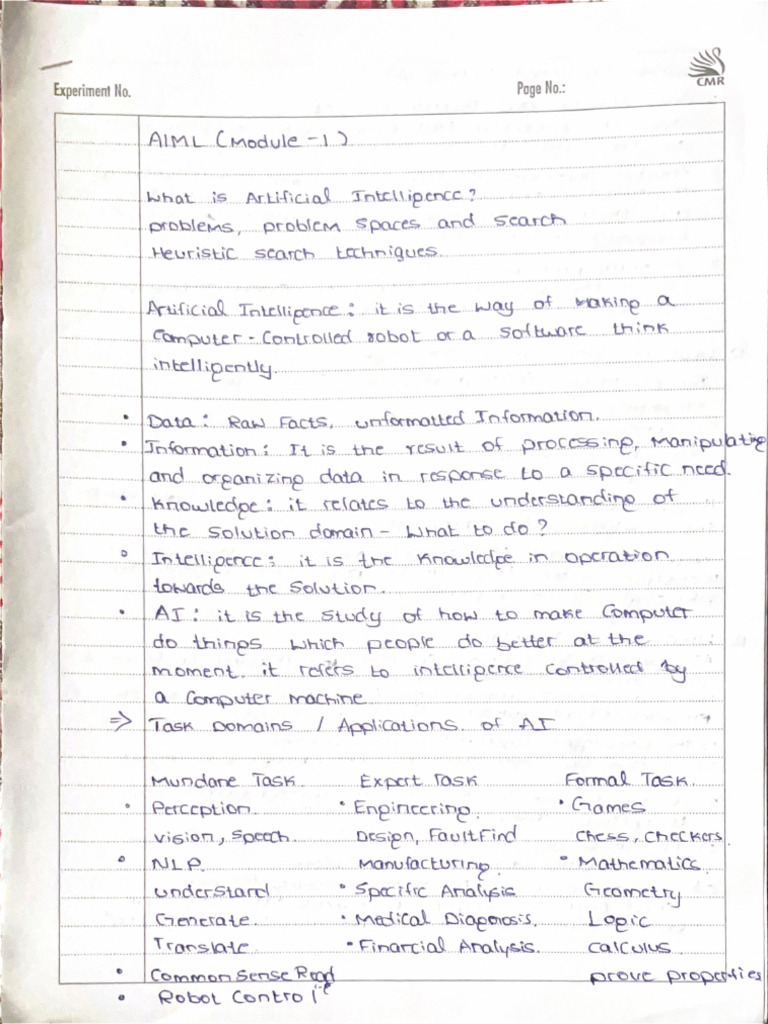 CMR
Experiment No.
Page No.:
AIML (Module-1)
What is Artificial Intelligence?
problems, problem spaces and search
Heuristic search techniques.
Artificial Intelligence: it is the way of making a
Computer-Controlled robot or a software think
intelligently.
• Data: Raw Facts, unformatted Information.
• Information: It is the result of processing, manipulating
and organizing data in response to a specific need.
• Knowledge: it relates to the understanding of
the solution domain - What to do?
• Intelligence: it is the knowledge in operation
towards the solution.
• AI: it is the study of how to make Computer
do things which people do better at the
moment. it refers to intelligence controlled by
a Computer machine
⇒ Task Domains / Applications. of AI
Mundane Task. Expert Task Formal Task.
• Perception. • Engineering. • Games
vision, speech. Design, FaultFind chess, checkers.
• NLP. Manufacturing. • Mathematics.
understand • Specific Analysis Geometry
Generate. • Medical Diagnosis. Logic
Translate • Financial Analysis. calculus
• Common Sense prove properties
• Robot Control